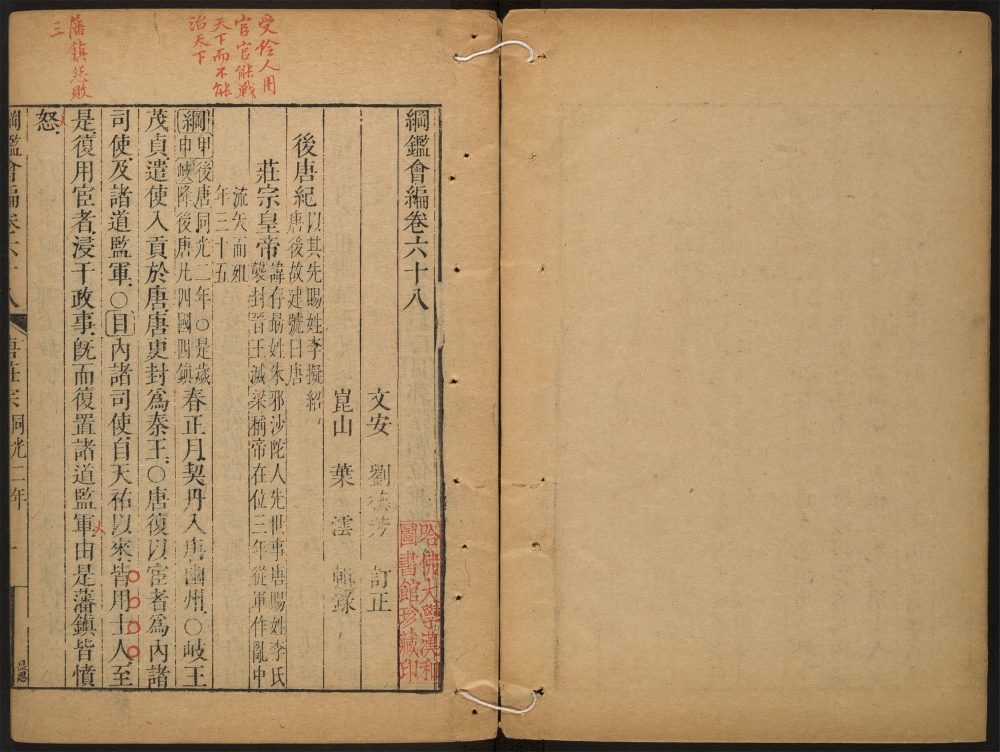 受伶人用
宦官能戰
天下而不能
治天下
藩鎮怒敗
三
綱鑑會編卷六十八
文安 劉德芳 訂正
崑山 葉澐 輯錄
後唐紀
以其先賜姓李擬紹
唐後故建號曰唐
莊宗皇帝
諱存勗姓朱邪沙陀人先世事唐賜姓李氏
襲封晉王滅梁稱帝在位三年從軍作亂中
流矢而殂
年三十五
綱
甲後唐同光二年○是歲
申岐降後唐凡四國四鎮
春正月契丹入唐幽州○岐王
茂貞遣使入貢於唐唐更封為秦王○唐復以宦者為內諸
司使及諸道監軍○目內諸司使自天祐以來皆用士人至
是復用宦者浸干政事旣而復置諸道監軍由是藩鎮皆憤
怒
綱鑑會編卷六十八
唐莊宗同光二年
一
哈佛大學漢和
圖書館珍藏印